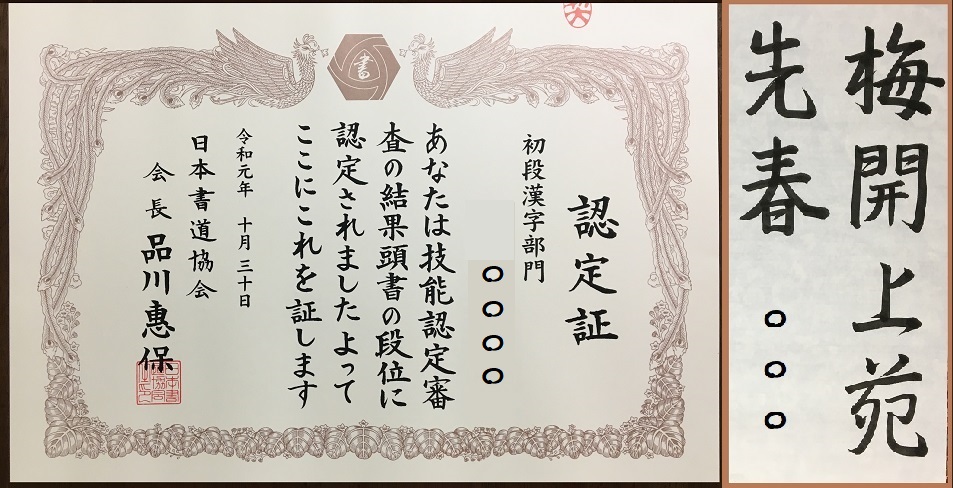 書
認定証
初段漢字部門
〇〇〇〇
あなたは技能認定審
査の結果頭書の段位に
認定されましたよって
ここにこれを証します
令和元年 十月 三十日
日本書道協会
会長 品川惠保
梅開上苑
先春 〇〇〇